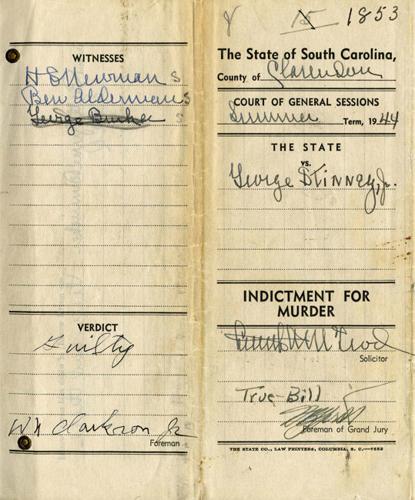 WITNESSES
H E Newman s
Ben Alderman s
George Burke s
VERDICT
Guilty
W H Clarkson Jr
Foreman
8 15 1853
The State of South Carolina,
County of Clarendon
COURT OF GENERAL SESSIONS
Summer Term, 1944
THE STATE
vs.
George Stinney, Jr.
INDICTMENT FOR
MURDER
McLeod
Solicitor
True Bill
Foreman of Grand Jury
THE STATE CO., LAW PRINTERS, COLUMBIA, S. C.